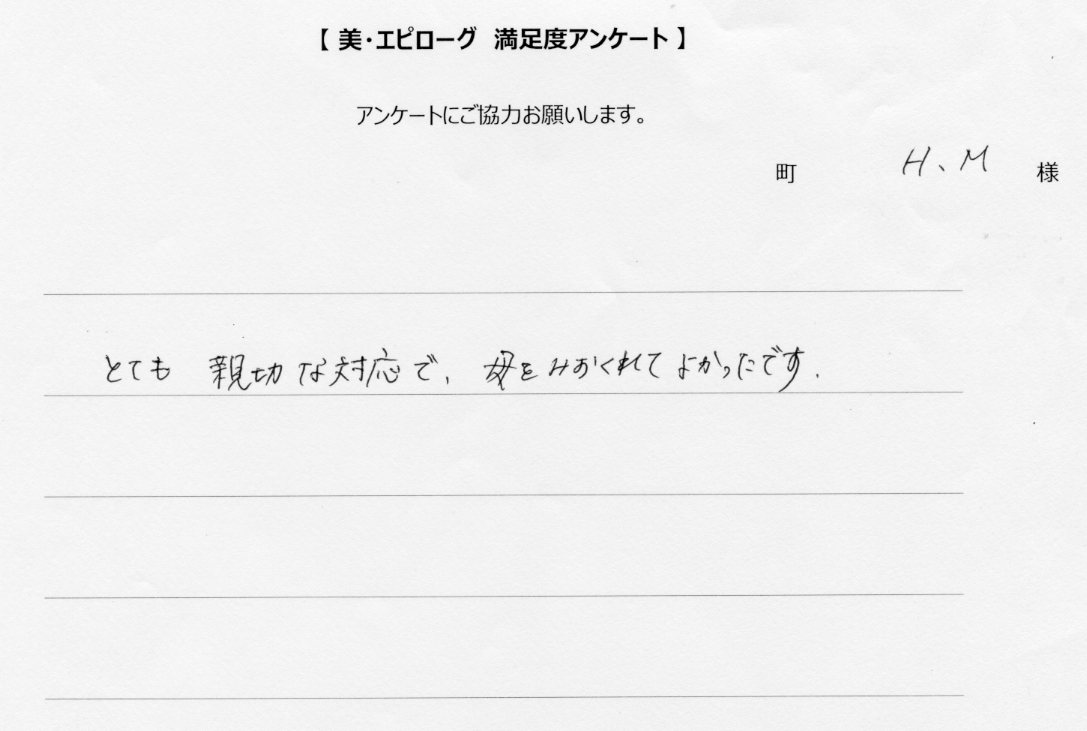 【 美・エピローグ 満足度アンケート 】
アンケートにご協力お願いします。
町 H、M 様
とても 親切な対応で、母をみおくれてよかったです.